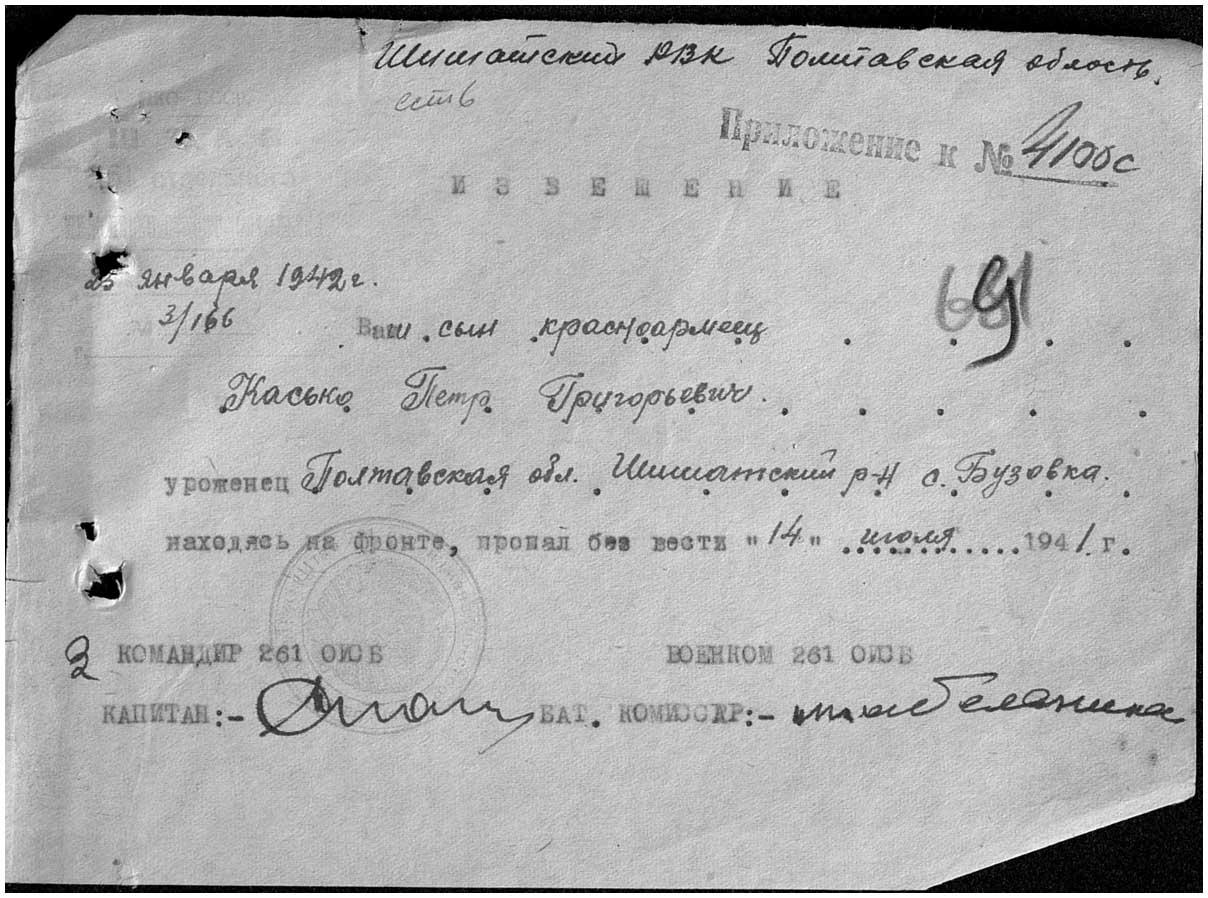 Шишатский РВК Полтавская область.
есть
Приложение к № 4100с
НКО СССР
ШТАБ
261 отдельного
ИЗВЕЩЕНИЕ
25 января 1942 г.
3/166
Ваш сын красноармеец
691
Касько Петр Григорьевич.
уроженец Полтавская обл. Шишатский р-н с. Бузовка.
находясь на фронте, пропал без вести "14" июля 1941 г.
З КОМАНДИР 261 ОИСБ ВОЕНКОМ 261 ОИСБ
КАПИТАН:- БАТ. КОМИССАР:-